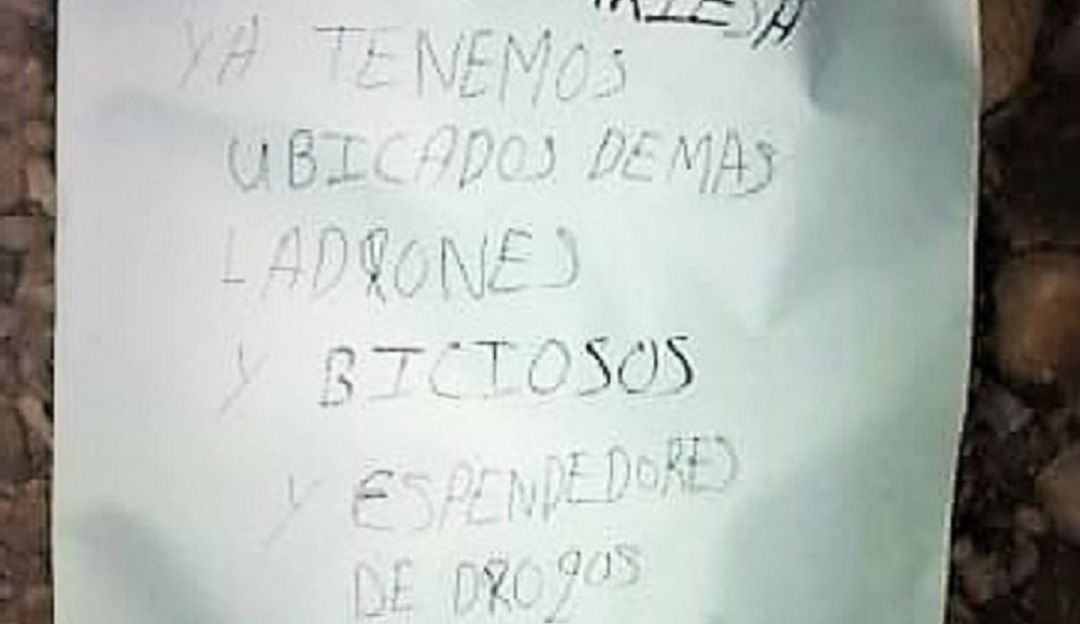 YA TENEMOS
UBICADOS DEMAS
LADRONES
Y BICIOSOS
Y ESPENDEDORES
DE DROgOS